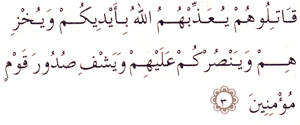 قَاتِلُوهُمْ يُعَذِّبْهُمُ اللهُ بِأَيْدِيكُمْ وَيُخْزِ
هِمْ وَيَنْصُرْكُمْ عَلَيْهِمْ وَيَشْفِ صُدُورَ قَوْمٍ
مُؤْمِنِينَ ٣